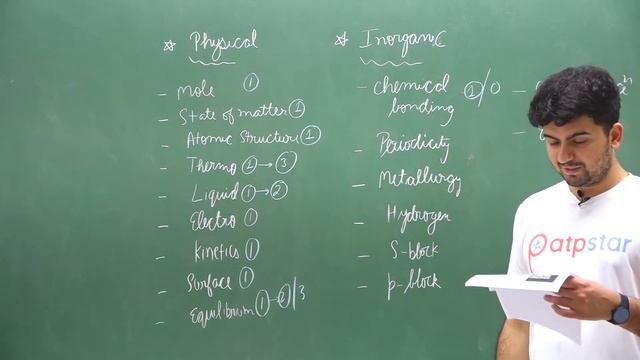 * Physical
- Mole ①
- State of matter ①
- Atomic Structure ①
- Thermo ① → ③
- Liquid ① → ②
- Electro ①
- Kinetics ①
- Surface ①
- Equilibrium ① - ②/3
* Inorganic
- chemical ①/0
bonding
- Periodicity
- Metallurgy
- Hydrogen
- S-block
- p-block
patpstar